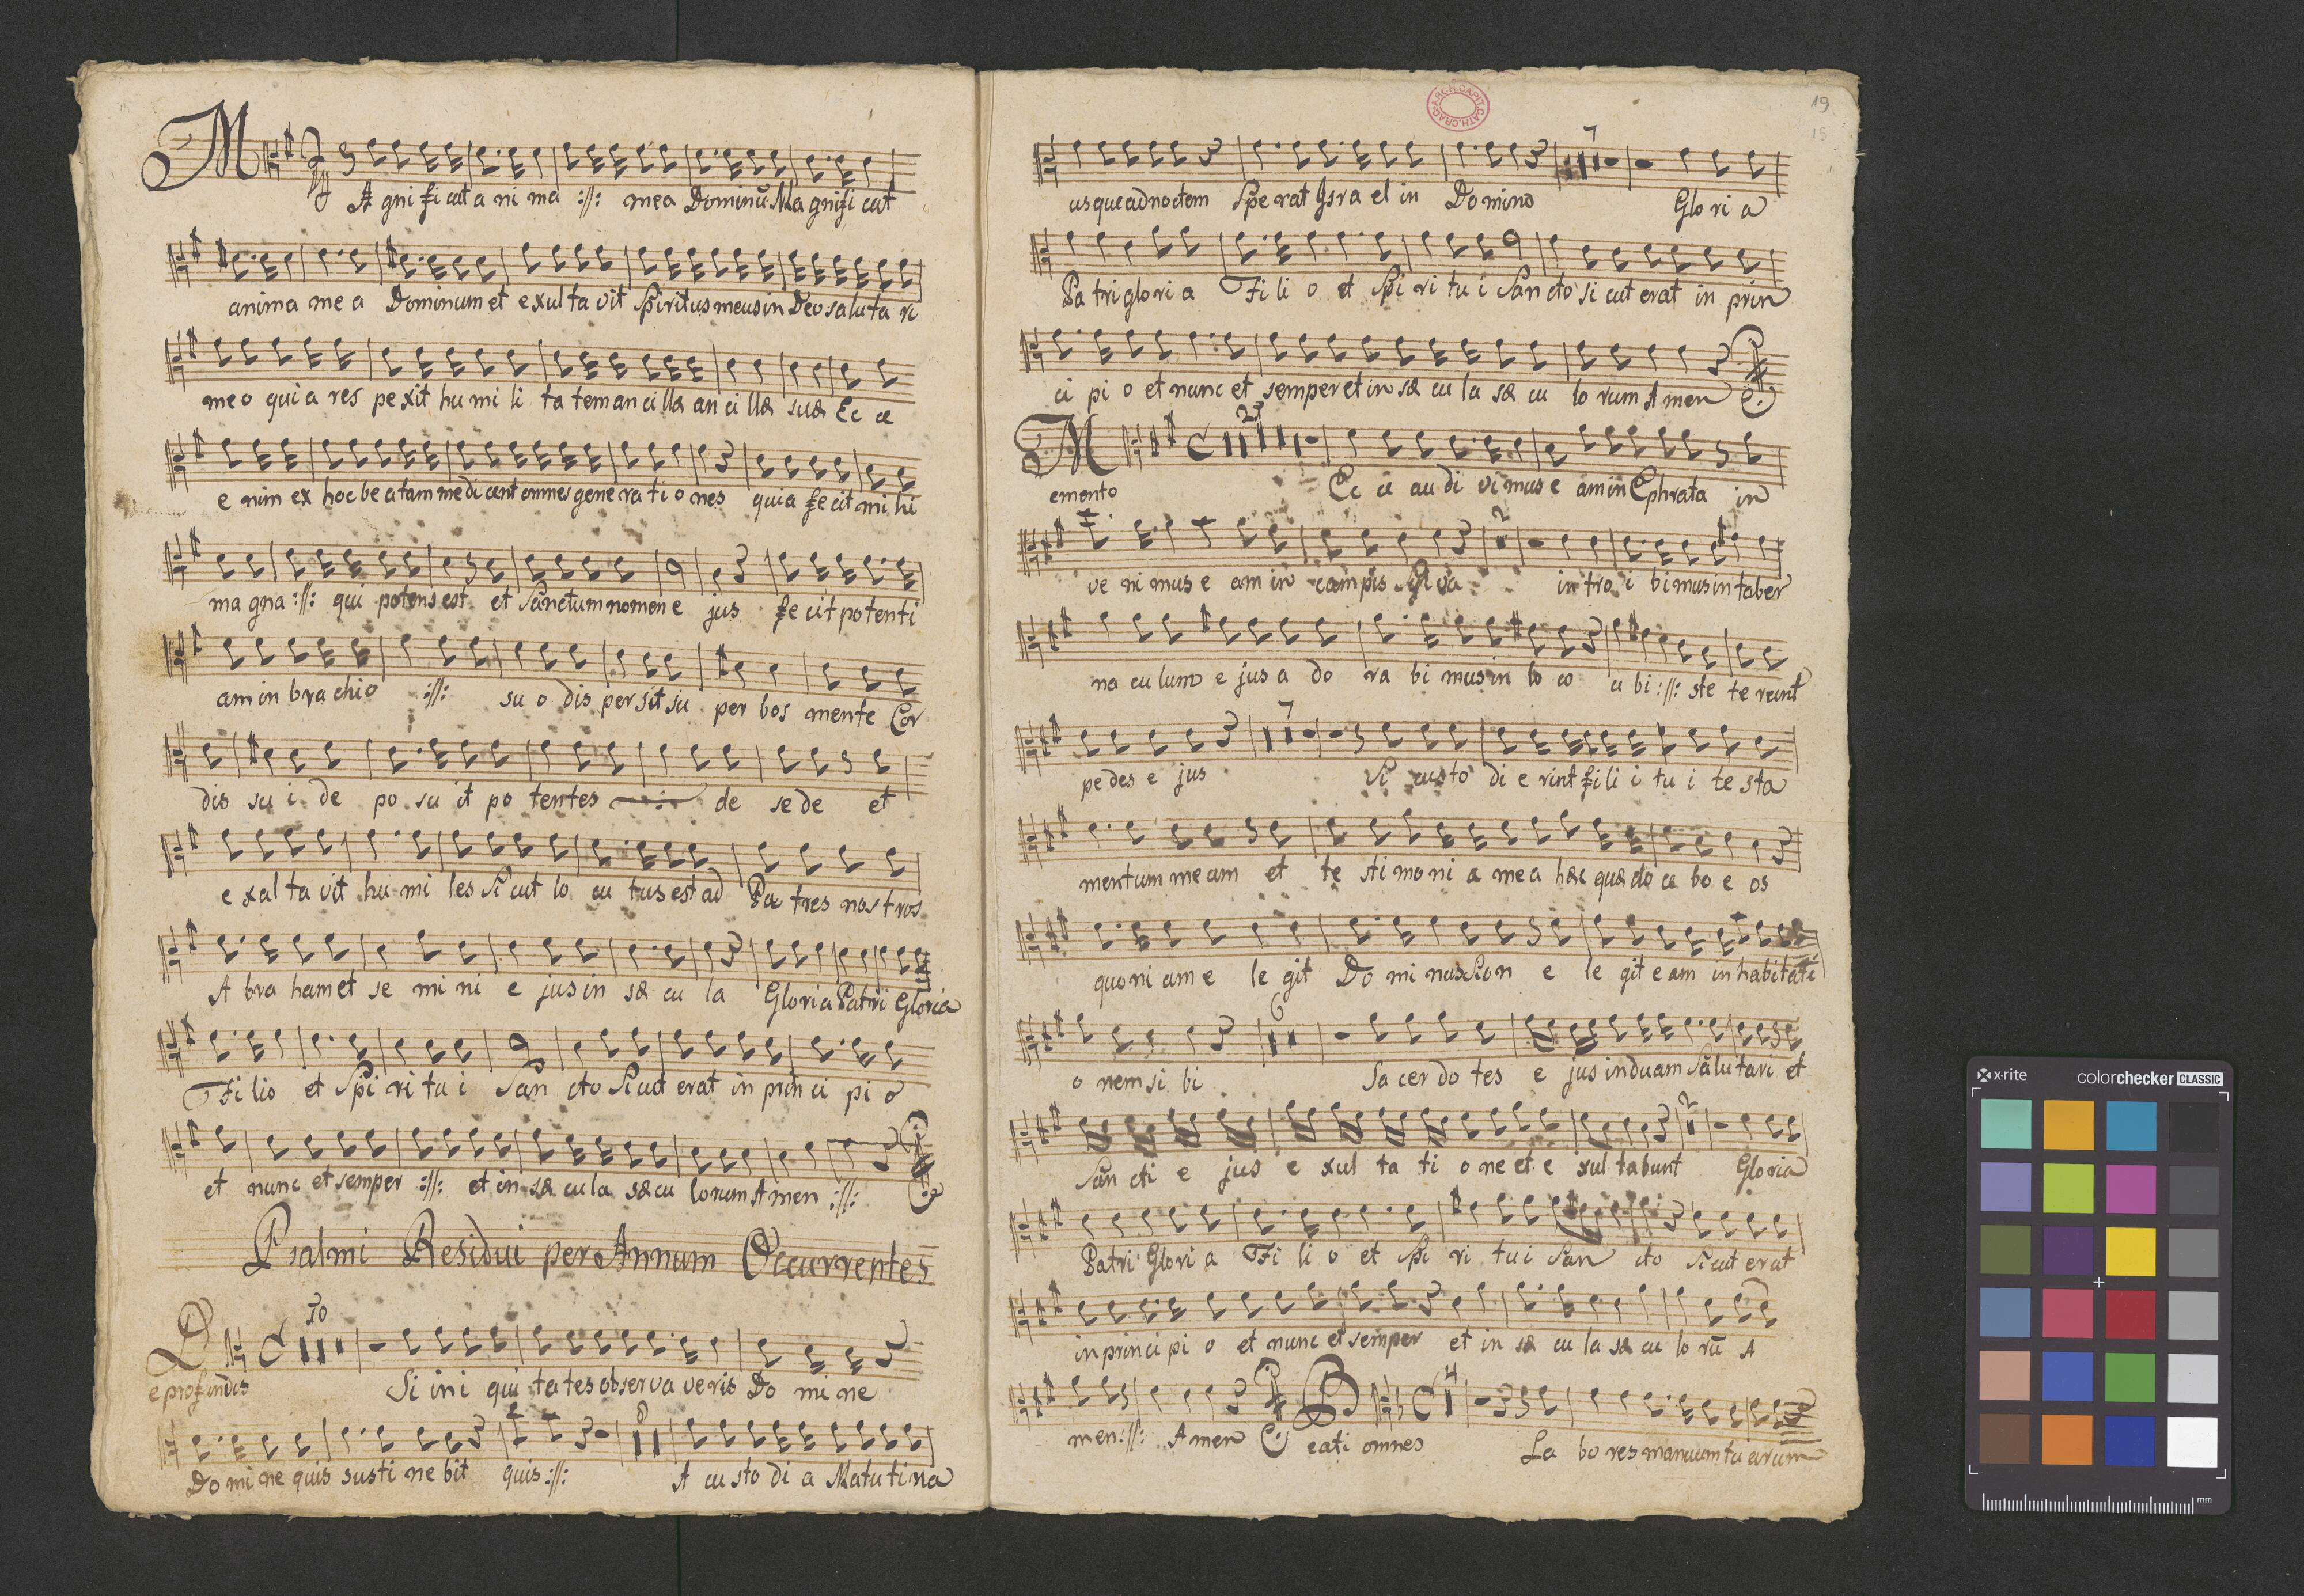 M Agnificat anima :||: mea Dominũ Magnificat
anima mea Dominum et exultavit Spiritus meus in Deo salutari
meo quia respexit humilitatem ancillæ ancillæ suæ Ecce
enim ex hoc beatam me dicent omnes generationes quia fecit mihi
magna :||: qui potens est et Sanctum nomen ejus fecit potenti
am in brachio :||: suo dispersit superbos mente Cor
dis sui deposuit potentes de sede et
exaltavit humiles Sicut locutus est ad Patres nostros
Abraham et semini ejus in sæcula Gloria Patri Gloria
Filio et Spiritui Sancto Sicut erat in principio
et nunc et semper :||: et in sæcula sæculorum Amen :||:
Psalmi Residui per Annum Occurrentes
10
De profundis Si iniquitates observaveris Domine
8
Domine quis sustinebit quis :||: A custodia Matutina
ARCH. CAPIT. CATH. CRAC.
19
15
7
usque ad noctem Sperat Israel in Domino Gloria
Patri gloria Filio et Spiritui Sancto sicut erat in prin
cipio et nunc et semper et in sæcula sæculorum Amen
Memento Ecce audivimus eam in Ephrata in
2
venimus eam in campis Silva introibimus in taber
naculum ejus adorabimus in loco ubi :||: steterunt
7
pedes ejus Si custodierint filii tui testa
mentum meum et testimonia mea hæc quæ docebo eos
quoniam elegit Dominus Sion elegit eam in habitati
6
onem sibi Sacerdotes ejus induam Salutari et
2
Sãncti ejus exultatione et exultabunt Gloria
Patri Gloria Filio et Spiritui Sancto Sicut erat
in principio et nunc et semper et in sæcula sæculorũ A
4
men :||: Amen Beati omnes Labores manuum tuarum
x-rite colorchecker CLASSIC
mm